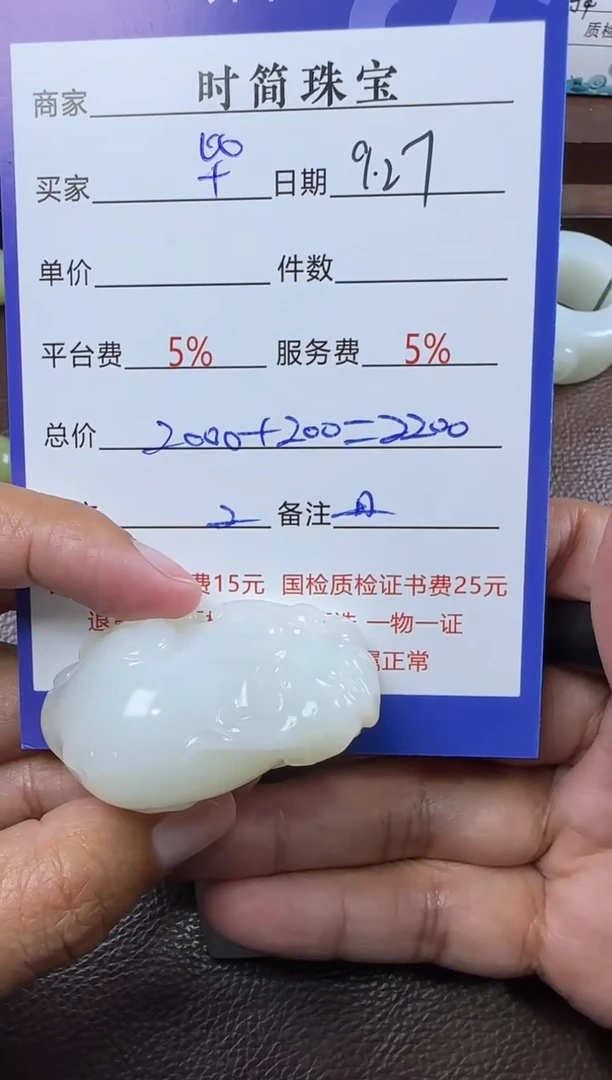 质检
商家 时简珠宝
买家 日期 9.27
单价 件数
平台费 5% 服务费 5%
总价 2000+200=2200
2 备注
费15元 国检质检证书费25元
一物一证
属正常